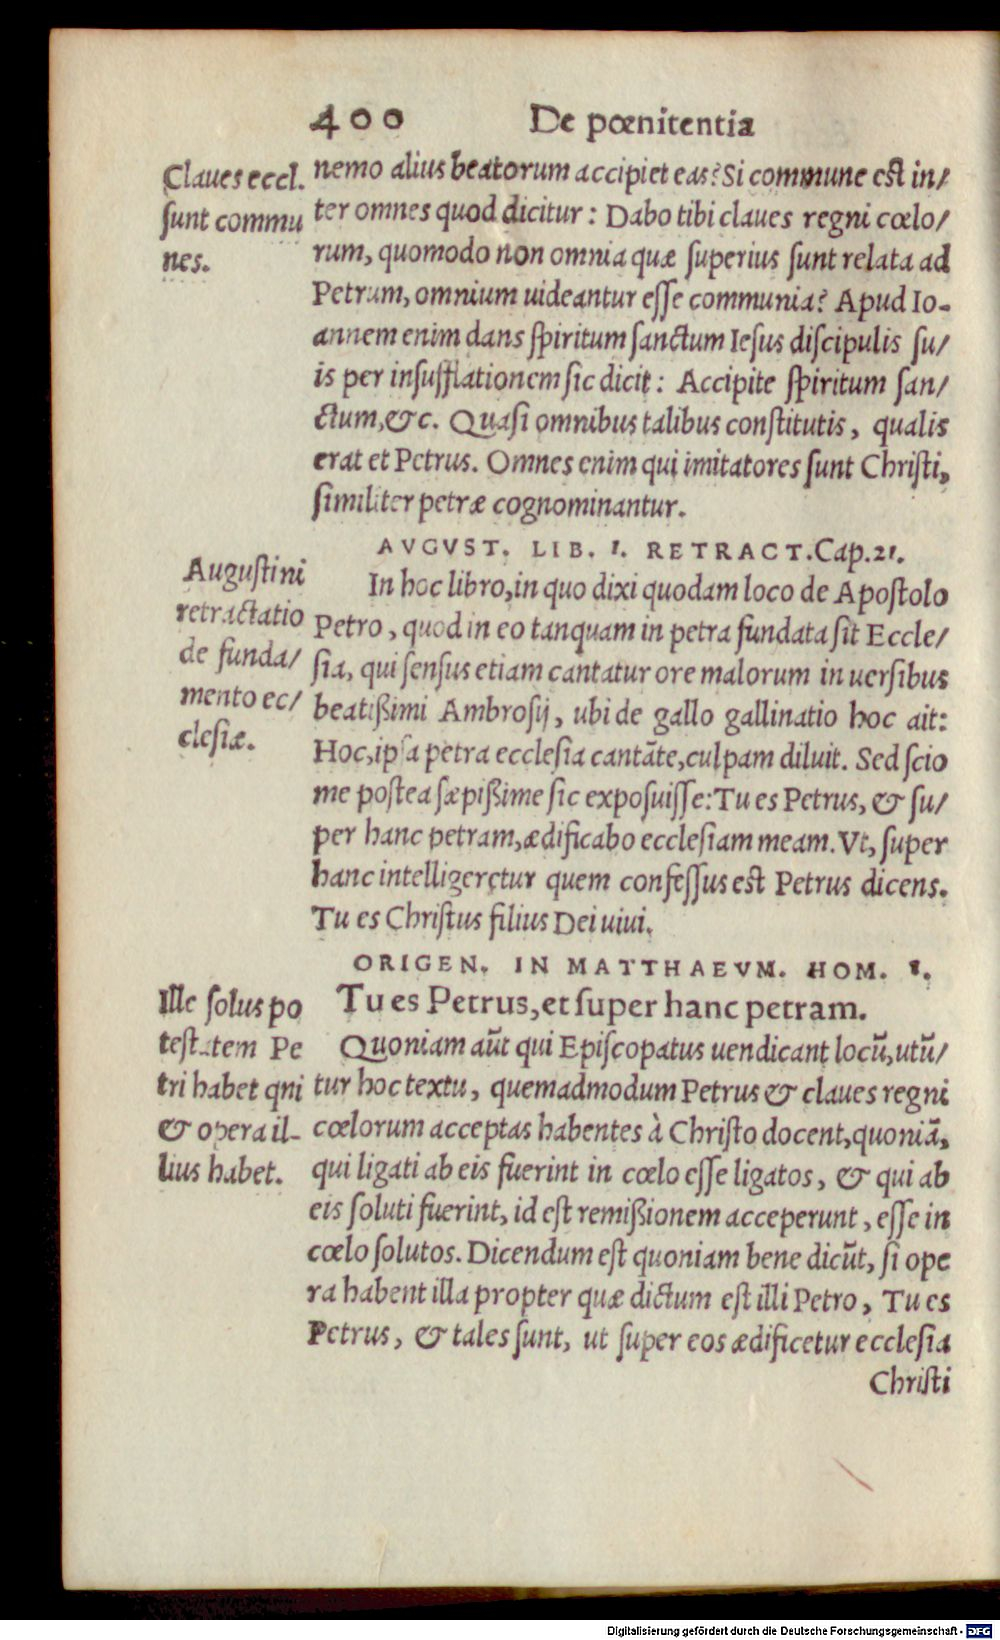 400 De pœnitentia
Claues eccl.
sunt commu
nes.
nemo alius beatorum accipiet eas? Si commune est in/
ter omnes quod dicitur: Dabo tibi claues regni cœlo/
rum, quomodo non omnia quæ superius sunt relata ad
Petrum, omnium uideantur esse communia? Apud Io-
annem enim dans spiritum sanctum Iesus discipulis su/
is per insufflationem sic dicit: Accipite spiritum san/
ctum, &c. Quasi omnibus talibus constitutis, qualis
erat et Petrus. Omnes enim qui imitatores sunt Christi,
similiter petræ cognominantur.
AVGVST. LIB. I. RETRACT. Cap. 21.
Augustini
retractatio
de funda/
mento ec/
clesiæ.
In hoc libro, in quo dixi quodam loco de Apostolo
Petro, quod in eo tanquam in petra fundata sit Eccle/
sia, qui sensus etiam cantatur ore malorum in uersibus
beatißimi Ambrosij, ubi de gallo gallinatio hoc ait:
Hoc, ipsa petra ecclesia cantāte, culpam diluit. Sed scio
me postea sæpißime sic exposuisse: Tu es Petrus, & su/
per hanc petram, ædificabo ecclesiam meam. Vt, super
hanc intelligeretur quem confessus est Petrus dicens.
Tu es Christus filius Dei uiui.
ORIGEN. IN MATTHAEVM. HOM. 1.
Tu es Petrus, et super hanc petram.
Ille solus po
testatem Pe
tri habet qni
& opera il-
lius habet.
Quoniam aūt qui Episcopatus uendicant locū, utū/
tur hoc textu, quemadmodum Petrus & claues regni
cœlorum acceptas habentes à Christo docent, quoniā,
qui ligati ab eis fuerint in cœlo esse ligatos, & qui ab
eis soluti fuerint, id est remißionem acceperunt, esse in
cœlo solutos. Dicendum est quoniam bene dicūt, si ope
ra habent illa propter quæ dictum est illi Petro, Tu es
Petrus, & tales sunt, ut super eos ædificetur ecclesia
Christi
Digitalisierung gefördert durch die Deutsche Forschungsgemeinschaft - DFG